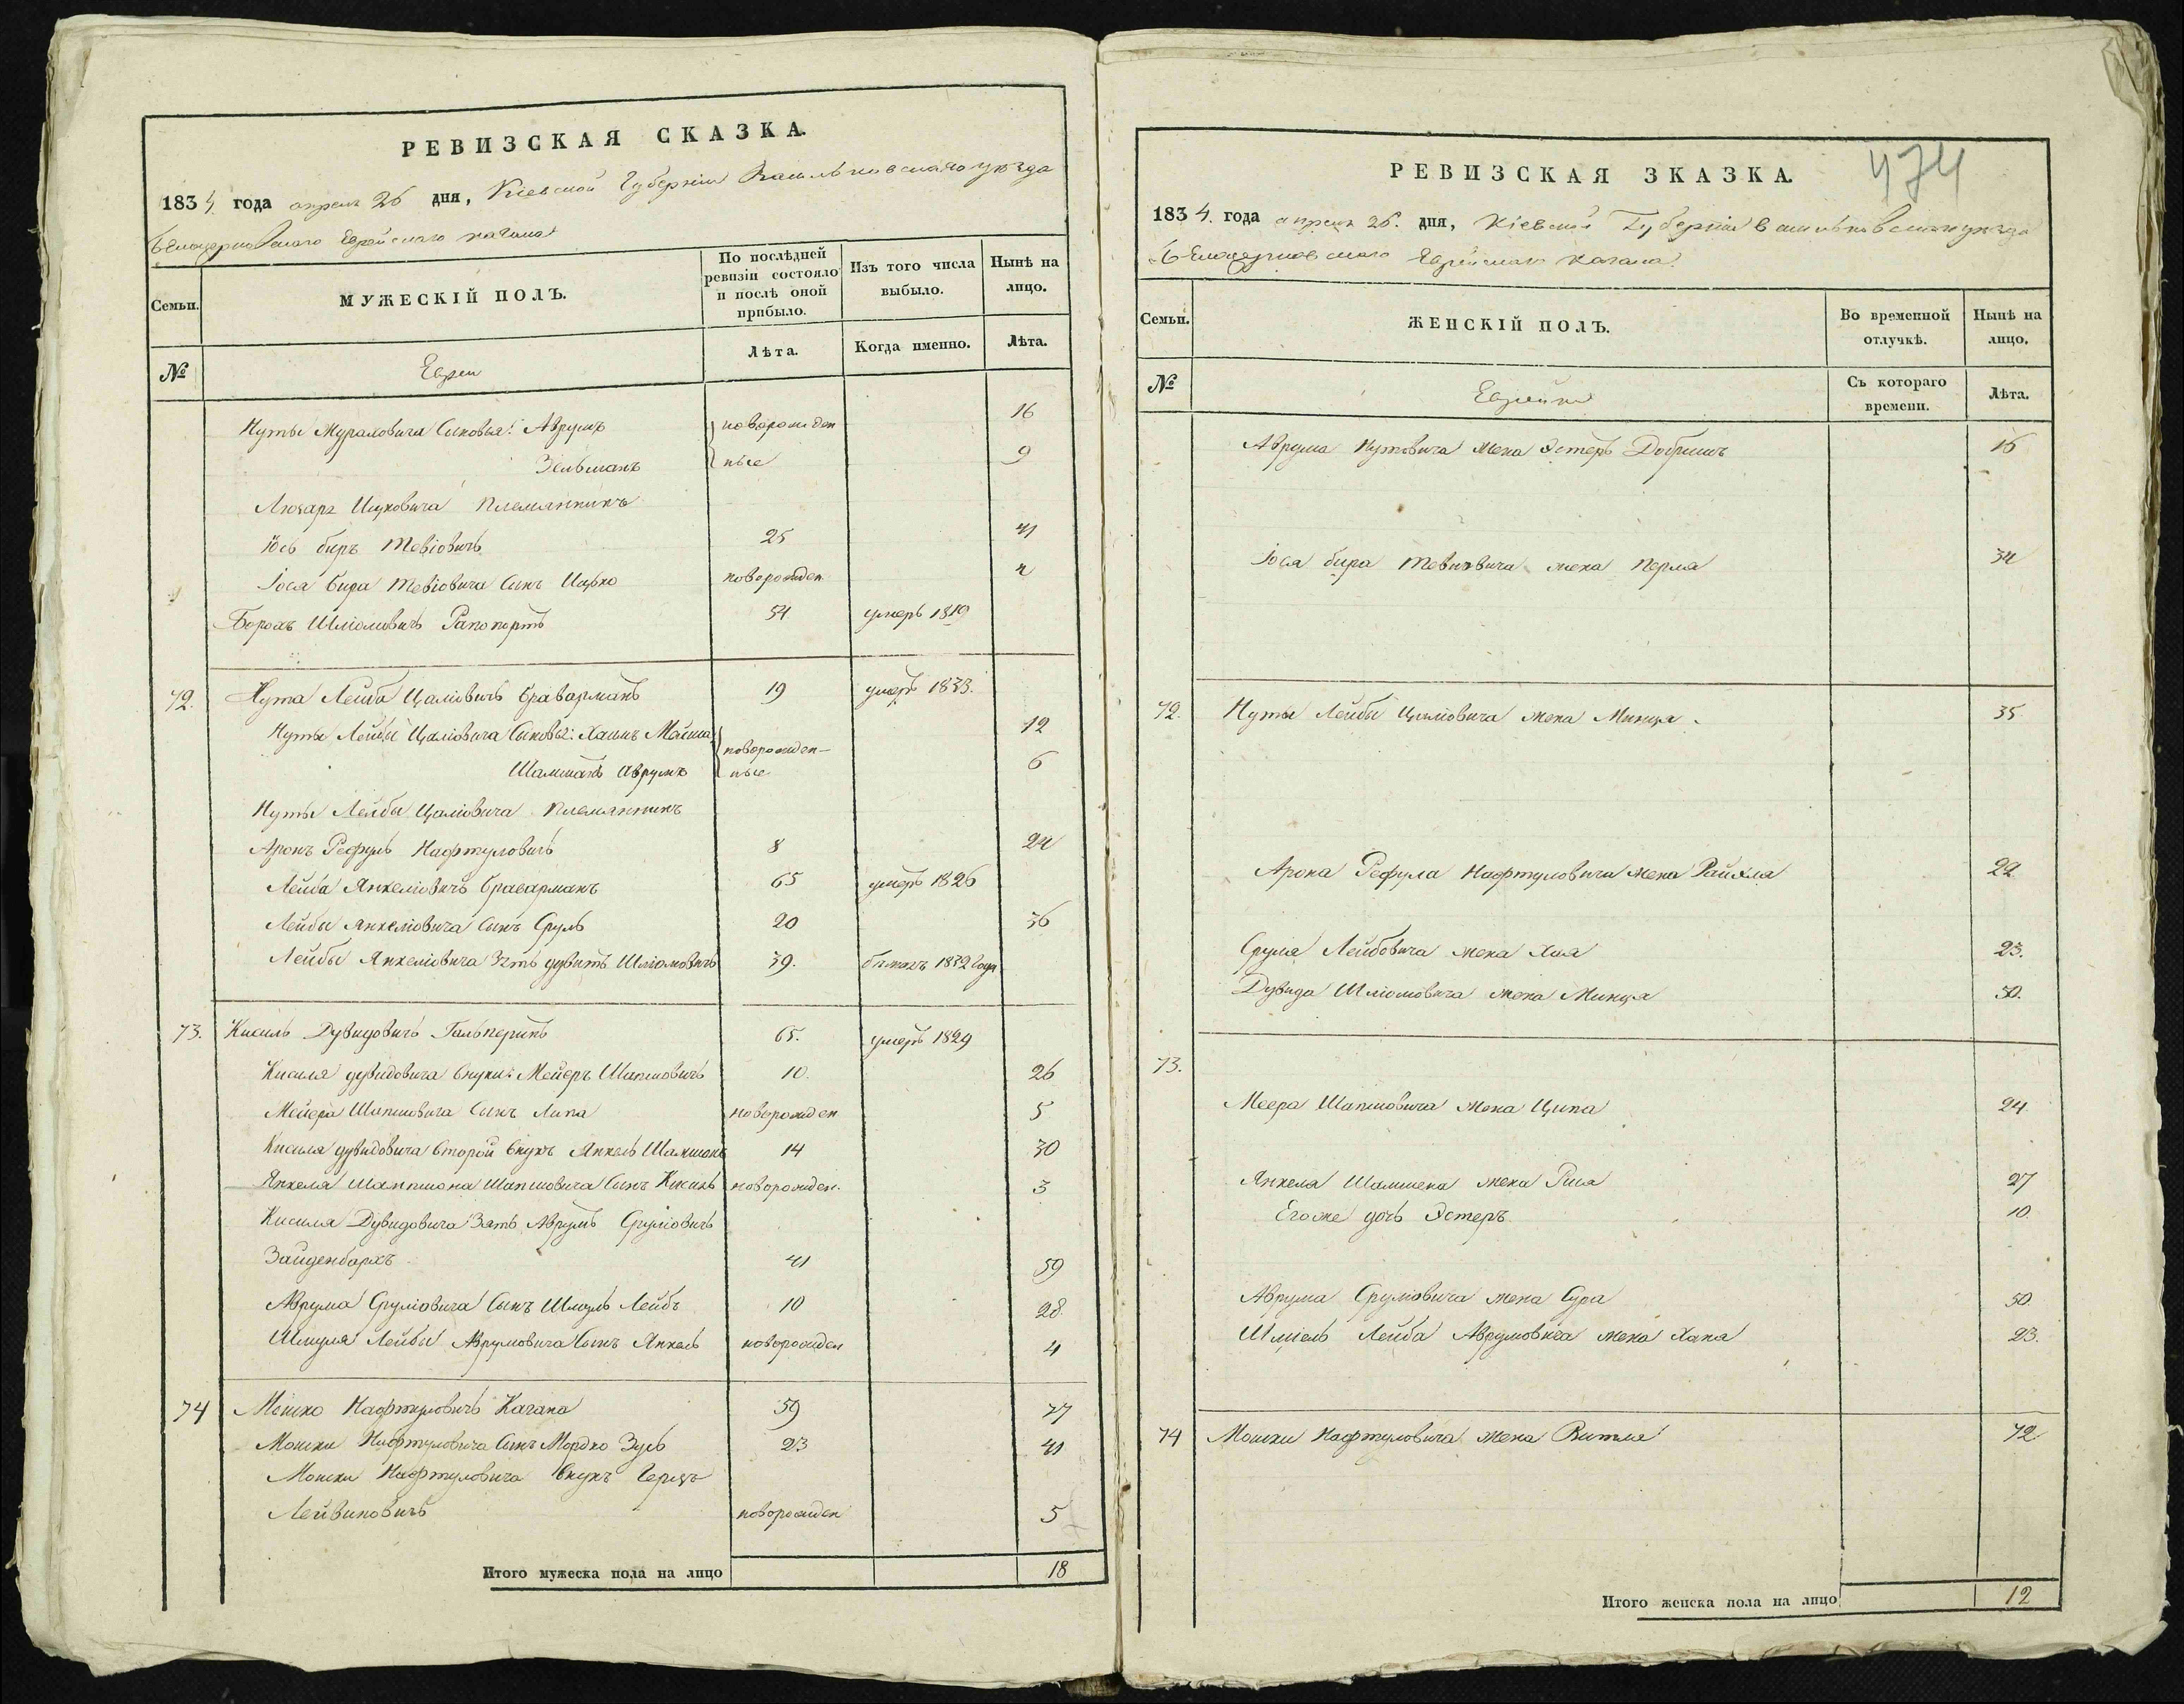 РЕВИЗСКАЯ СКАЗКА.
1834 года апреля 26 дня, Кіевской Губерніи Васильковскаго уезда
Белоцерковскаго Еврейскаго кагала
Семьи.
МУЖЕСКІЙ ПОЛЪ.
По послѣдней ревизіи состояло и послѣ оной прибыло.
Изъ того числа выбыло.
Нынѣ на лицо.
№
Евреи
Лѣта.
Когда именно.
Лѣта.
Нуты Сыновья: Аврумъ новорожден 16
Зельманъ ные 9
Ицковича племянникъ
Іось беръ Тевіовичъ 25 41
Іося бера Тевіовича Сынъ Ицько новорожден
Борохъ Шліомовичъ Рапопортъ 54 умеръ 1819
72. Нута Лейба Цаліовичъ Браварманъ 19 умеръ 1833.
Нуты Лейбы Цаліовича Сыновья: Хаимъ 12
новорожден-
Шамшонъ Аврумъ ные 6
Нуты Лейбы Цаліовича племянникъ
Аронъ Рефулъ Нафтуловичъ 8 24
Лейба Янкеліовичъ Браварманъ 65 умеръ 1826
Лейбы Янкеліовича Сынъ Сруль 20 36
Лейбы Янкеліовича Зять дувидъ Шліомовичъ 39. 1832 года
73. Кисиль Дувидовичъ Гальперинъ 65. умеръ 1829
Кисиля дувидовича внуки: Мейеръ Шапшовичъ 10. 26
Мейера Шапшовича Сынъ Липа новорожден 5
Кисиля дувидовича второй внукъ Янкель Шамшонъ 14 30
Янкеля Шапшовича Сынъ Кисиль новорожден. 3
Кисиля Дувидовича Зять Аврумъ Сруліовичъ
Зайденбархъ 41 59
Аврума Сруліовича Сынъ Шмуль Лейбъ 10 28.
Шмуля Лейбы Аврумовича Сынъ Янкель новорожден 4
74 Мошко Нафтуловичъ Кагана 59 77
Мошки Нафтуловича Сынъ Мордко Зусь 23 41
Мошки Нафтуловича внукъ Герцъ
Лейвиковичъ новорожден 5
Итого мужеска пола на лицо 18
474
РЕВИЗСКАЯ ЗКАЗКА.
1834. года апреля 26. дня, Кіевской Губерніи Васильковскаго уезда
Белоцерковскаго Еврейскаго кагала.
Семьи.
ЖЕНСКІЙ ПОЛЪ.
Во временной отлучкѣ.
Нынѣ на лицо.
№
Еврейки
Съ котораго времени.
Лѣта.
Аврума Нутовича жена Эстеръ 16
Іося бера Тевиовича жена Перля 34
72. Нуты Лейбы Цаліовича жена Минця. 35
Арона Рефула Нафтуловича жена Райхля 22
Сруля Лейбовича жена Хия 23.
Дувида Шліомовича жена Минця 30.
73.
Меера Шапшовича жена Ципа 24
Янкеля Шамшона жена Рися 27
Его же дочь Эстеръ 10.
Аврума Сруліовича жена Сура 50.
Шміель Лейба Аврумовича жена Хана 23.
74 Мошки Нафтуловича жена Ритля 72
Итого женска пола на лицо 12